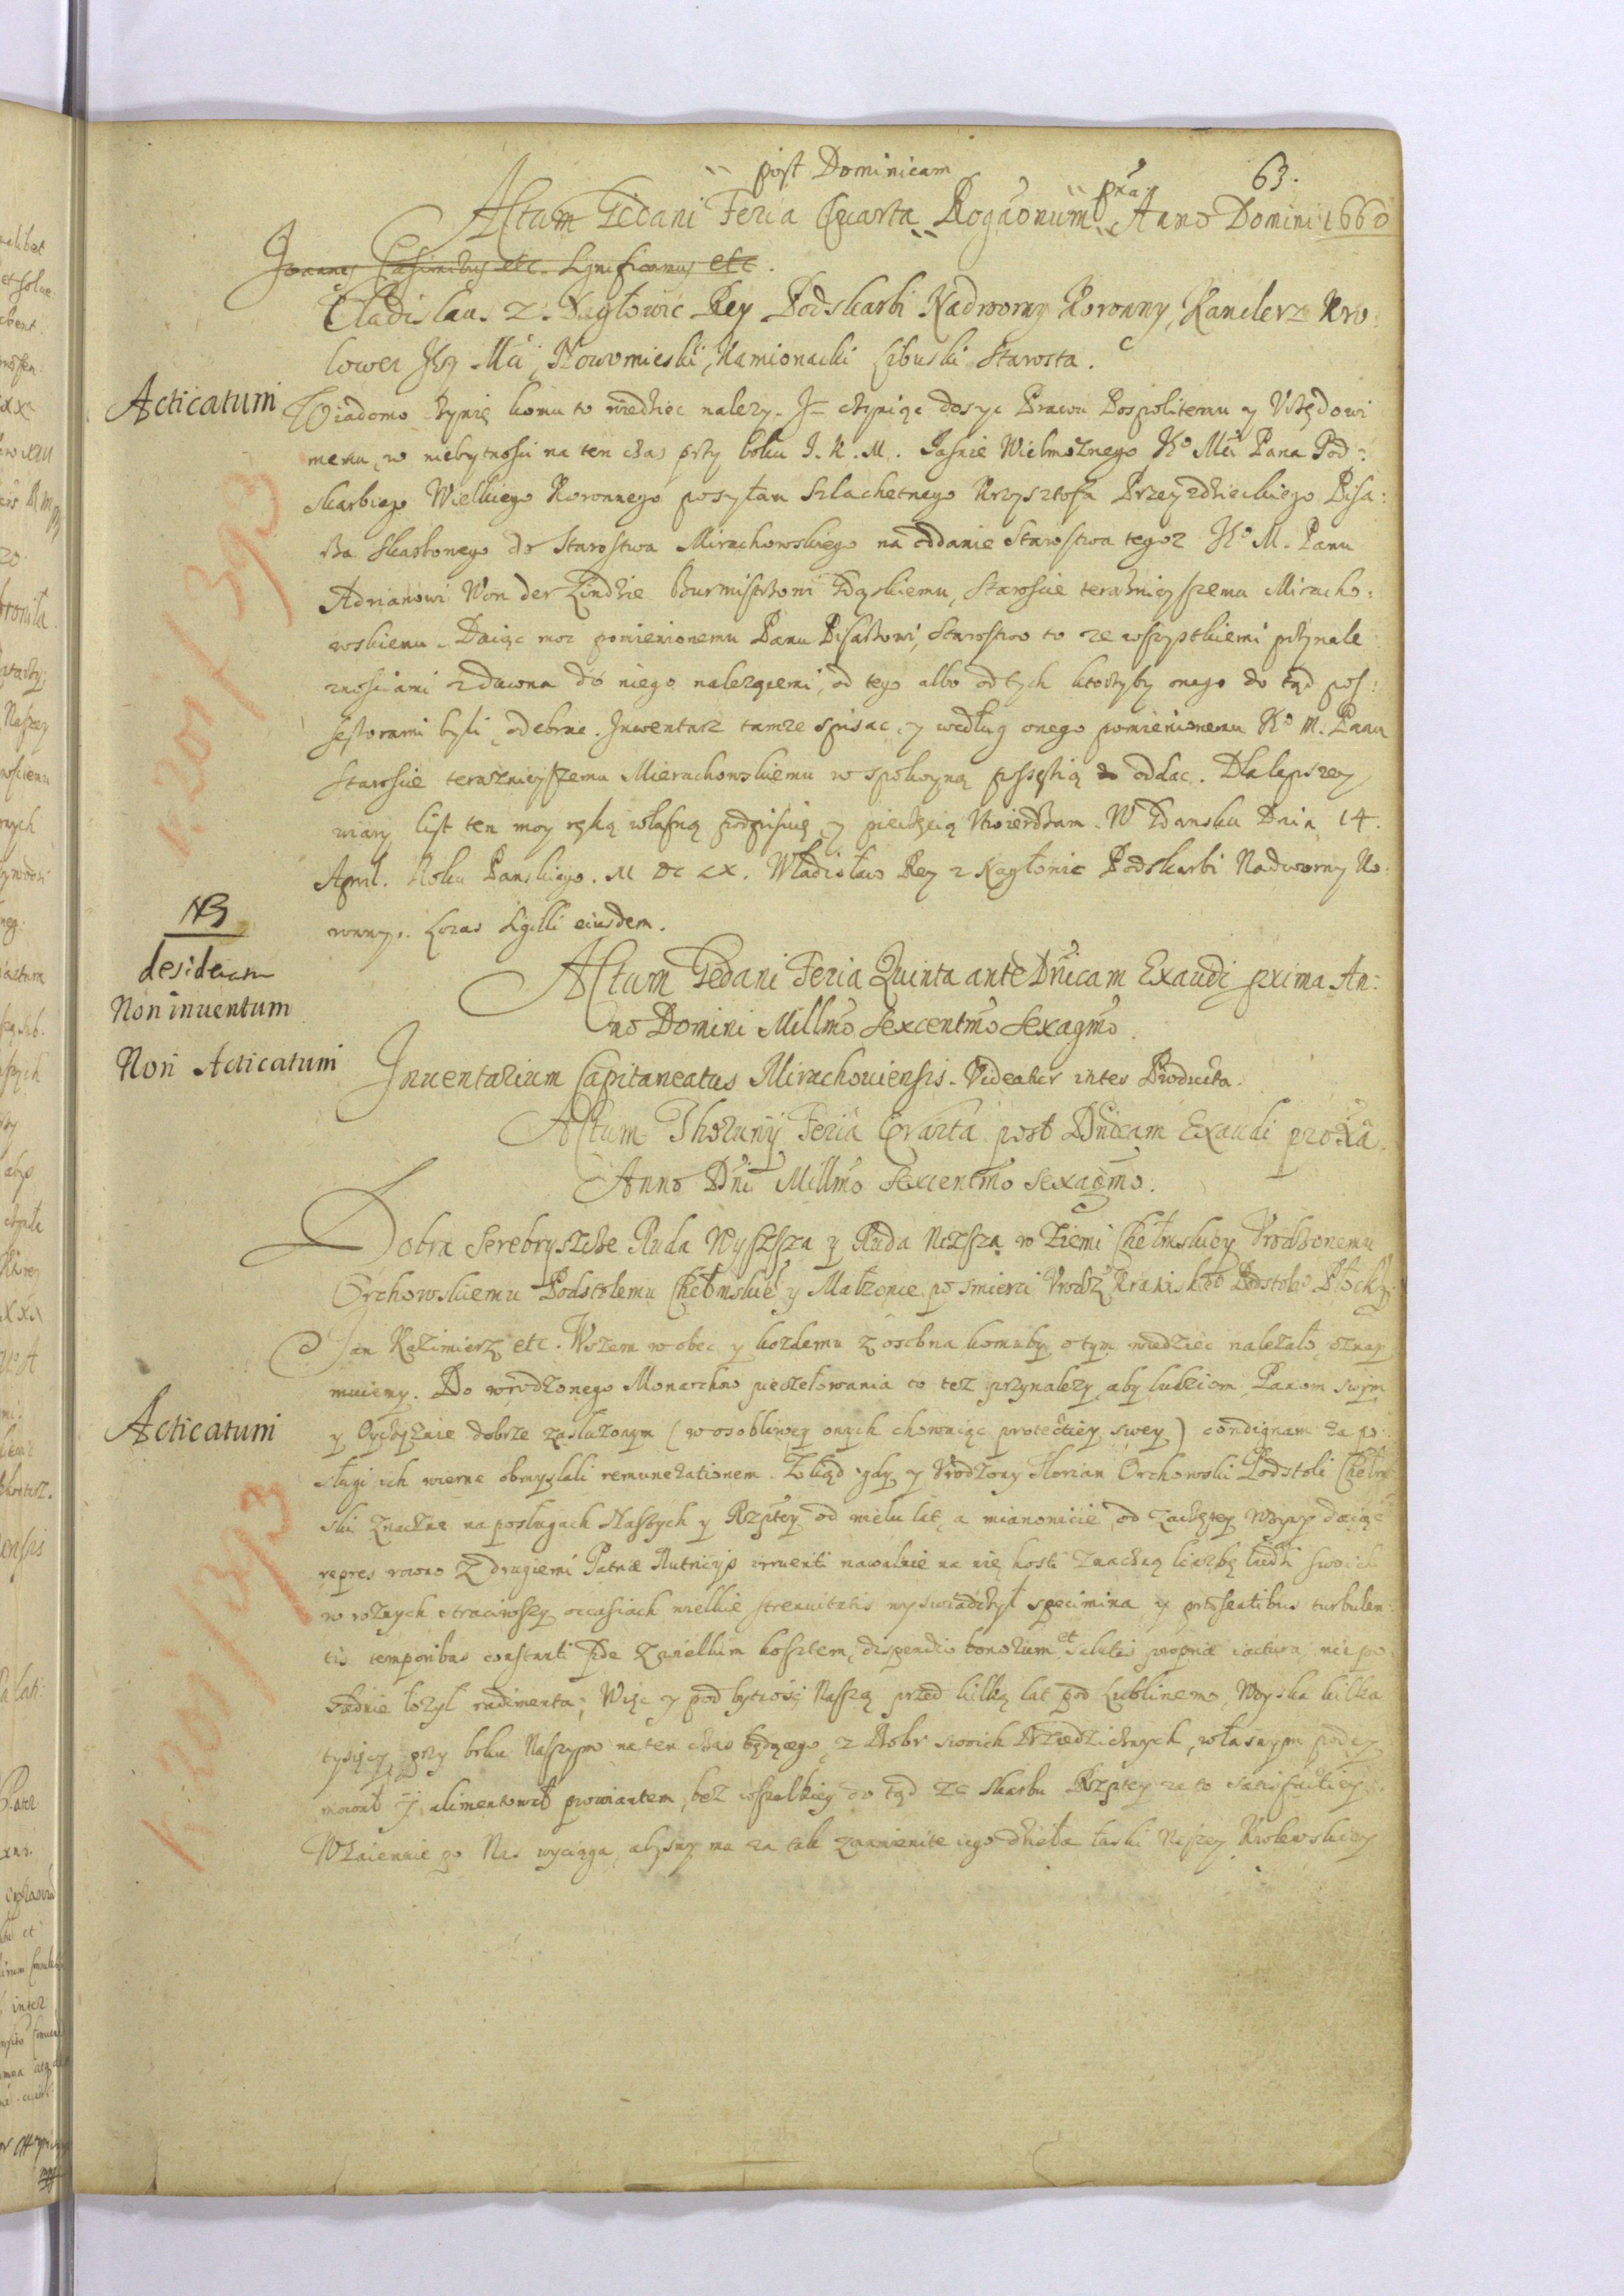 63.
post Dominicam
Actum Gedani Feria Quarta Rogaonum pxa Anno Domini 1660
Joannes Casimirus etc. Significamus etc.
Wladislau z Nagłowic Rey Podskarbi Nadworny Koronny, Kanclerz Kro
lowei Jey Mci, Nowomieski, Kamionacki Libuski Starosta.
Acticatum
Wiadomo czynię komu to wiedziec nalezy. Iz czyniąc dosyc Prawu Pospolitemu y Vrzędowi
memu, w niebytnosci na ten czas przy boku J. K. M. Jasnie Wielmoznego Ko Mci Pana Pod:
skarbiego Wielkiego Koronnego posyłam Szlachetnego Krzysztofa Przeyzdzieckiego Pisa:
rza skarbonego do Starostwa Mirachowskiego na oddanie Starostwa tegoz Ko M. Panu
Adrianowi Von der Lindzie Burmistrzowi Gdąskiemu, Staroscie teraznieyszemu Miracho:
wskiemu. Daiąc moc pomienionemu Panu Pisarzowi, Starostwo to ze wszystkiemi przynale
znosciami zdawna do niego nalezącemi, od tego albo od tych ktorzyby onego do tąd pos:
sessorami byli, odebrac. Inwentarz tamze spisac, y według onego pomienionemu Ko M. Panu
Staroscie terazнieyszemu Mierachowskiemu w spokoyną possessią oddac. Dla lepszey
wiary list ten moy ręką własną podpisuię, y pieczęcią stwierdzam. W Gdansku Dnia 14.
April. Roku Panskiego. M DC LX. Władisław Rey z Nagłowic Podskarbi Nadworny Ko:
ronny. Locus Sigilli eiusdem.
NB
desideratum
Non inuentum
Actum Gedani Feria Quinta ante Dnicam Exaudi prima An:
no Domini Millmo Sexcentmo Sexagmo.
Non Acticatum
Inuentarium Capitaneatus Mirachouiensis. Videatur inter Producta.
Actum Thorunÿ Feria Qvarta post Dnicam Exaudi proxa
Anno Dni Millmo Sexcentmo Sexagmo.
Dobra Serebryszcze Ruda Wyszsza y Ruda Nizsza w Ziemi Chełmskiey Vrodzonemu
Orchowskiemu Podstolemu Chełmskie y Małzonce po smierci Vrodz Podstole Płocky.
Jan Kazimierz etc. Wszem wobec y kozdemu z osobna komuby o tym wiedziec nalezało, oznay
muiemy. Do wrodzonego Monarchow pieczołowania to tez przynalezy, aby ludziom, Panom swym
Acticatum
y Oyczyznie dobrze zasłuzonym (w osobliwey onych chowaiąc protectiey swey) condignam za po
sługi ich wierne obmyslali remunerationem. Zkąd gdy y Vrodzony Florian Orchowski Podstoli Chełm
ski znaczne na posługach Naszych y Rzptey od wielu lat, a mianowicie od zaczętey Woyny daiąc
repres z drugiemi Patriæ nawalnie na nię hosti znaczną liczbę ludzi swoich
w roznych straciwszy occasiach wielkie strenuitatis wyswiadczył specimina, y præsentibus turbulen
tis temporibus constanti Pde kosztem, dispendio bonorum et salutis propriæ iactura, nie po
slednie łozył rudimenta; Więc y pod bytnosc Naszą przed kilką lat pod Lublinem, Woyska kilka
tysięcy przy boku Naszym na ten czas będącego, z Dobr swoich Dziedzicznych, własnym podey
mował y alimentował prowiantem, bez wszelkiey do tąd ze Skarbu Rzptey za to satisfactiey.
Wzaiemnie po Nas wyciąga, abysmy mu za tak znamienite iego dzieła łaski Nszey Krolewskiey